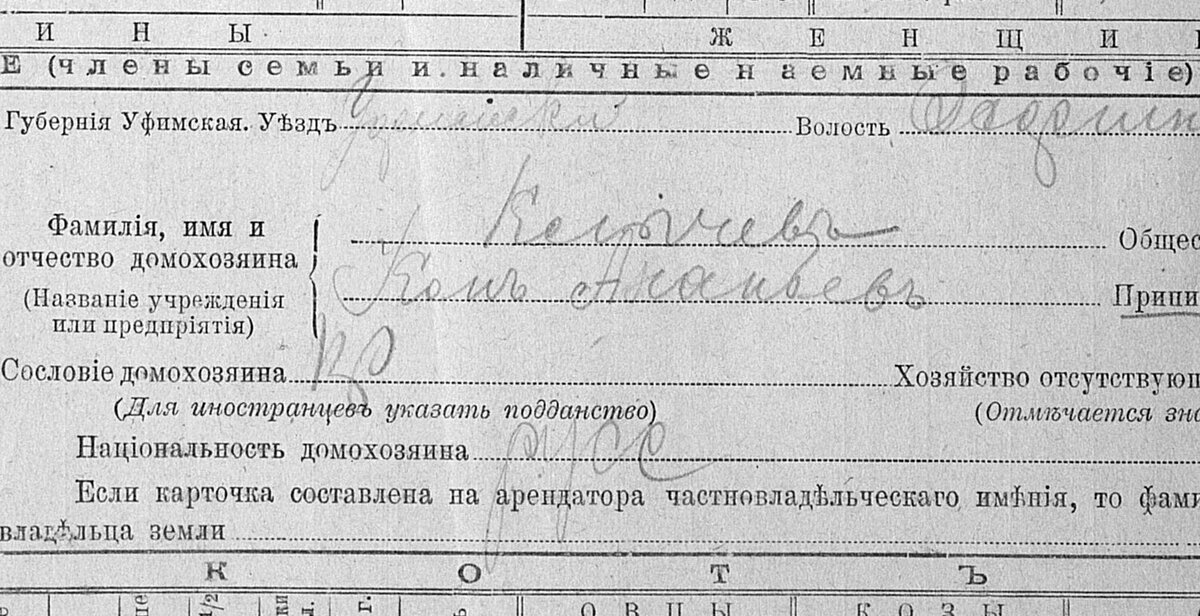 ИНЫ ЖЕНЩИ
Е (члены семьи и наличные наемные рабочіе)
Губернія Уфимская. Уѣздъ Волость
Фамилія, имя и
отчество домохозяина
Общес
(Названіе учрежденія
или предпріятія)
Ананьевъ Припи
Сословіе домохозяина кр Хозяйство отсутствующ
(Для иностранцевъ указать подданство) (Отмѣчается зна
Національность домохозяина русс
Если карточка составлена на арендатора частновладѣльческаго имѣнія, то фами
владѣльца земли
КОТЪ
1/2 ки г. ОВЦЫ КОЗЫ